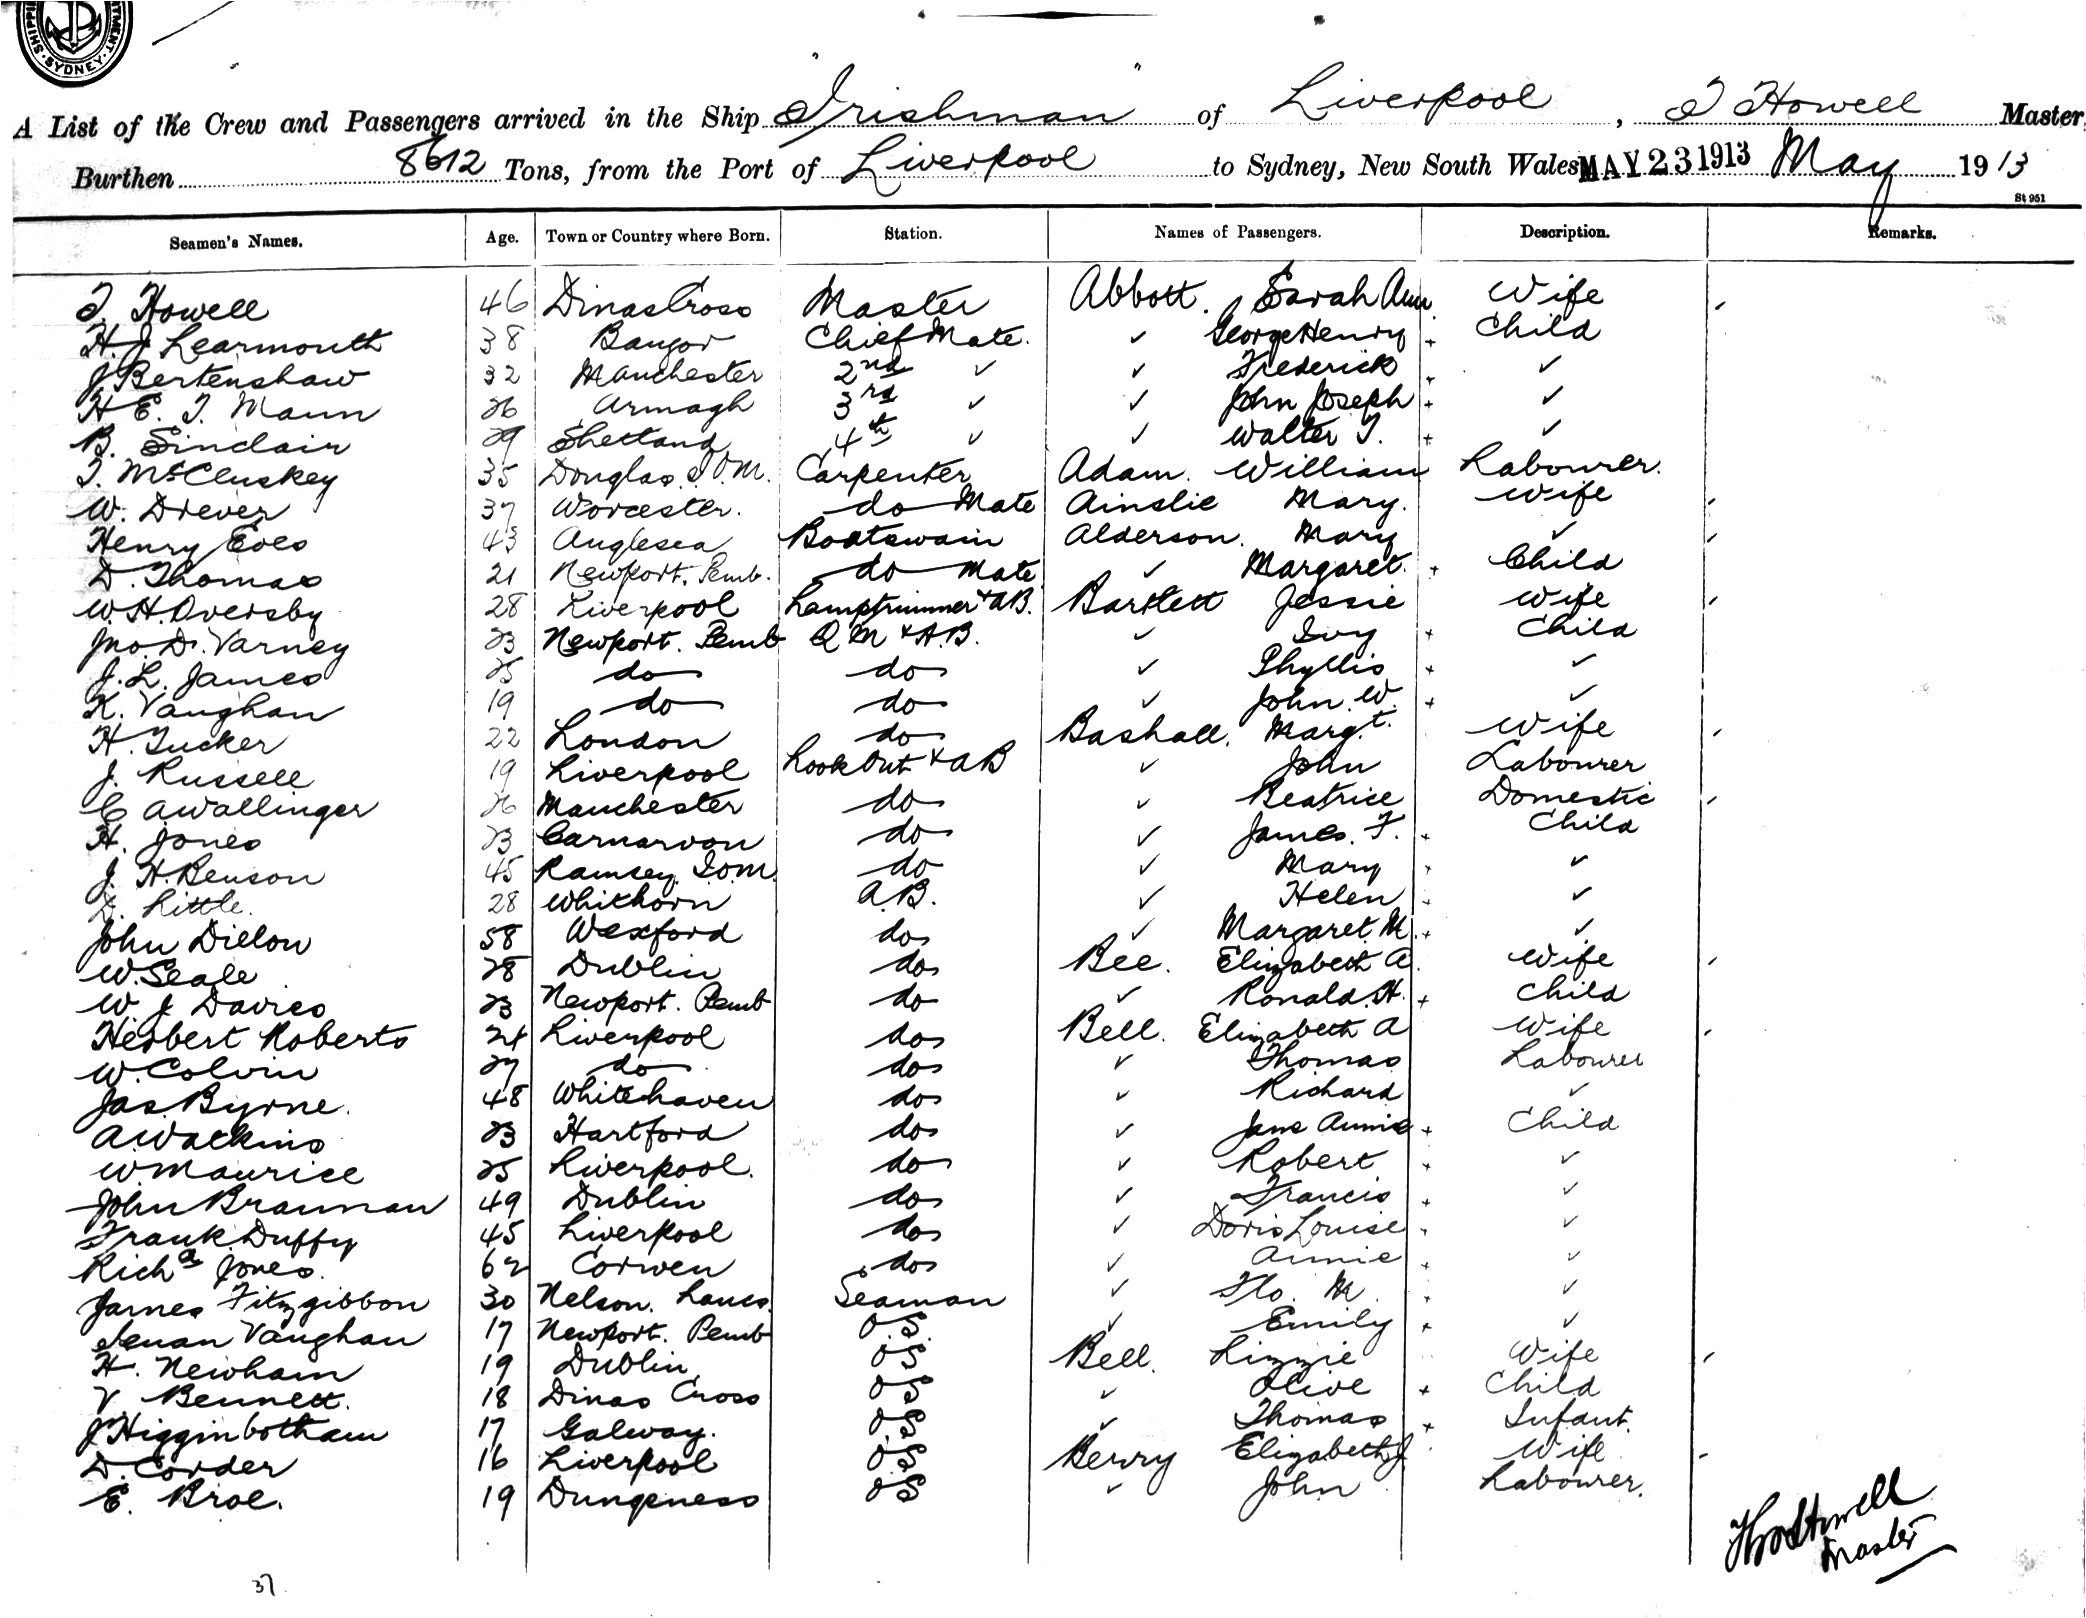 SHIPPI
TMENT.
SYDNEY
A List of the Crew and Passengers arrived in the Ship "Irishman" of Liverpool, T Howell Master,
Burthen 8612 Tons, from the Port of Liverpool to Sydney, New South Wales MAY 23 1913 May 1913
St 951
Seamen's Names. Age. Town or Country where Born. Station. Names of Passengers. Description. Remarks.
T. Howell 46 Dinas Cross Master Abbott. Sarah Ann Wife
H. J Learmouth 38 Bangor Chief Mate. ✓ George Henry + Child
J Bertenshaw 32 Manchester 2nd ✓ ✓ Frederick + ✓
H E. T. Mann 26 Armagh 3rd ✓ ✓ John Joseph + ✓
B. Sinclair 29 Shetland 4th ✓ ✓ Walter T. + ✓
T. McCluskey 35 Douglas. I.O.M. Carpenter Adam. William Labourer.
W. Drever 37 Worcester. do Mate Ainslie Mary. Wife
Henry Eves 43 Anglesea Boatswain Alderson. Mary ✓
D. Thomas 21 Newport. Pemb. do Mate ✓ Margaret. + Child
W. H. Oversby 28 Liverpool Lamptrimmer & AB. Bartlett Jessie Wife
Jno. D. Varney 23 Newport. Pemb Q M & A.B. ✓ Ivy + Child
J. L. James 25 do do ✓ Phyllis + ✓
K. Vaughan 19 do do ✓ John. W. + ✓
H. Tucker 22 London do Bashall. Margt. Wife
J. Russell 19 Liverpool Look Out & AB ✓ John Labourer
C AWallinger 26 Manchester do ✓ Beatrice Domestic
H. Jones 23 Carnarvon do ✓ James. F. + Child
J. H. Benson 45 Ramsey I.O.M do ✓ Mary + ✓
D. Little. 28 Whithorn A.B. ✓ Helen ✓
John Dillon 58 Wexford do ✓ Margaret. M. + ✓
W. Seale 28 Dublin do Bee. Elizabeth A. Wife
W. J Davies 23 Newport. Pemb do ✓ Ronald. H. + Child
Herbert Roberts 24 Liverpool do Bell. Elizabeth A Wife
W. Colvin 27 do do ✓ Thomas Labourer
Jas. Byrne. 48 Whitehaven do ✓ Richard ✓
A Watkins 23 Hartford do ✓ Jane Annie + Child
W. Maurice 25 Liverpool. do ✓ Robert + ✓
John Brannan 49 Dublin do ✓ Francis + ✓
Frank Duffy 45 Liverpool do ✓ Doris Louise ✓
Richd Jones. 62 Corwen do ✓ Annie + ✓
James Fitzgibbon 30 Nelson. Lancs. Seaman ✓ Flo. M. ✓
Vaughan 17 Newport. Pemb O.S. ✓ Emily + ✓
H. Newham 19 Dublin O S Bell. Lizzie Wife
V Bennett. 18 Dinas Cross O S ✓ Olive + Child
J Higginbotham 17 Galway. O.S ✓ Thomas + Infant.
D. Corder 16 Liverpool O.S Berry Elizabeth J Wife
E. Broe. 19 Dungeness O S ✓ John Labourer.
Thos Howell
Master
37